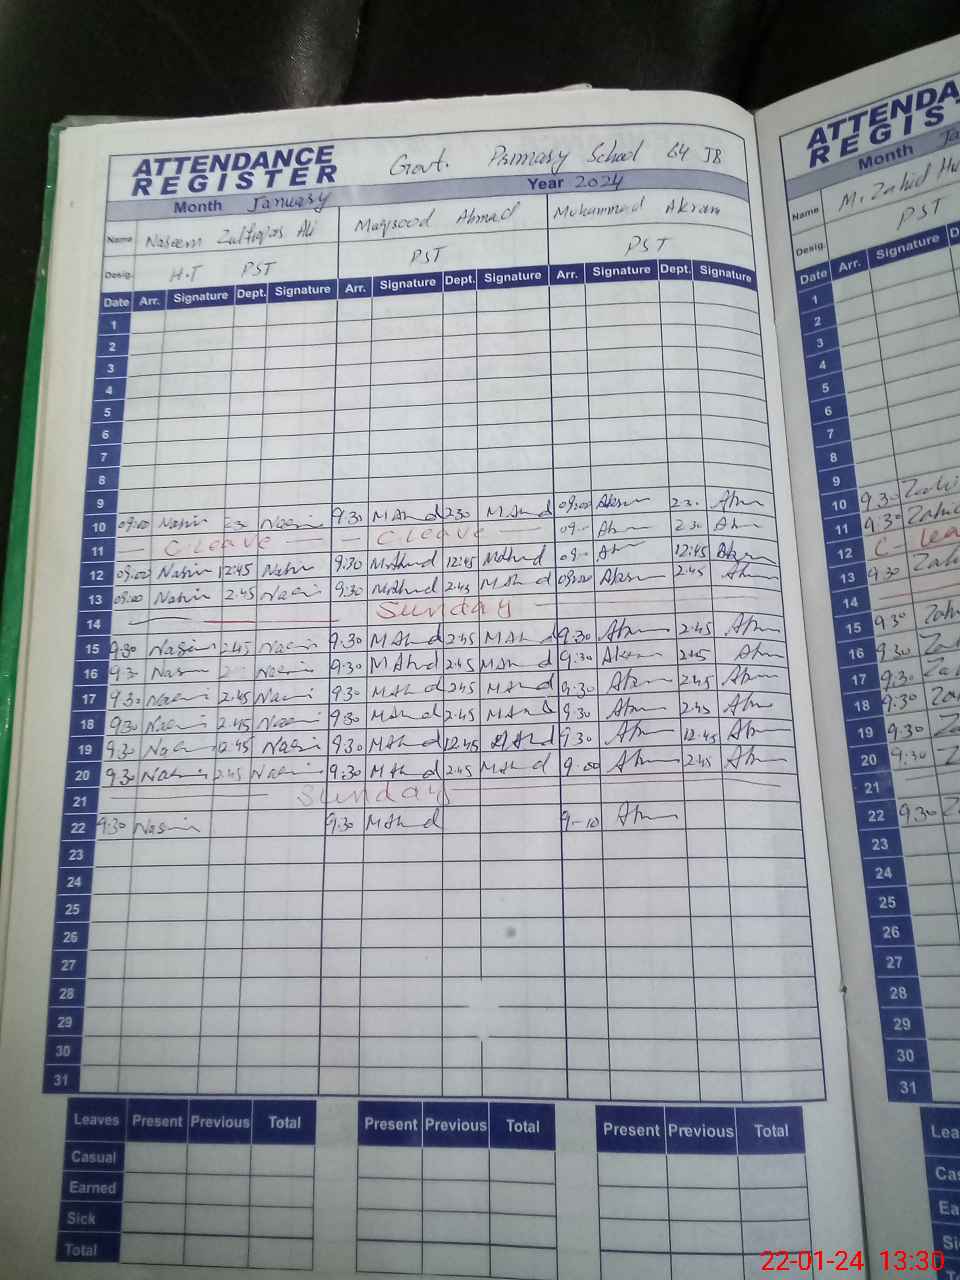 ATTENDANCE REGISTER Govt. Primary School 64 JB
Month January Year 2024
Name Naseem Zulfiqar Ali Maqsood Ahmad Muhammad Akram
Desig. H.T PST PST PST
Date Arr. Signature Dept. Signature Arr. Signature Dept. Signature Arr. Signature Dept. Signature
1
2
3
4
5
6
7
8
9
10 09:00 Nasim 2.30 Nasim 9.30 MAhmd 2.30 MAhmd 09:00 Akram 2.30 Akm
11 C.leave C.leave 09:00 Akm 2.30 Akm
12 09:00 Nasim 12:45 Nasim 9:30 MAhmd 12:45 MAhmd 09:00 Akm 12:45 Akram
13 09:00 Nasim 2.45 Nasim 9:30 MAhmd 2.45 MAhmd 09:00 Akram 2.45 Akm
14 Sunday
15 9:30 Nasim 2.45 Nasim 9.30 MAhmd 2.45 MAhmd 9.30 Akm 2.45 Akm
16 9.30 Nasim Nasim 9.30 MAhmd 2.45 MAhmd 9:30 Akram 2.45 Akm
17 9.30 Nasim 2.45 Nasim 9.30 MAhmd 2.45 MAhmd 9:30 Akm 2.45 Akm
18 9.30 Nasim 2.45 Nasim 9.30 MAhmd 2.45 MAhmd 9.30 Akm 2.45 Akm
19 9.30 Nasim 12.45 Nasim 9.30 MAhmd 12.45 MAhmd 9.30 Akm 12.45 Akm
20 9.30 Nasim 2.45 Nasim 9.30 MAhmd 2.45 MAhmd 9.00 Akm 2.45 Akm
21 Sunday
22 9:30 Nasim 9.30 MAhmd 9-10 Akm
23
24
25
26
27
28
29
30
31
Leaves Present Previous Total Present Previous Total Present Previous Total
Casual
Earned
Sick
Total
Month
Name M. Zahid
Desig. PST
Date Arr. Signature
1
2
3
4
5
6
7
8
9
10 9.30
11 9.30
12 C-
13 9.30
14
15 9.30
16 9.30
17 9.30
18 9.30
19 9.30
20 9:30
21
22 9.30
23
24
25
26
27
28
29
30
31
22-01-24 13:30